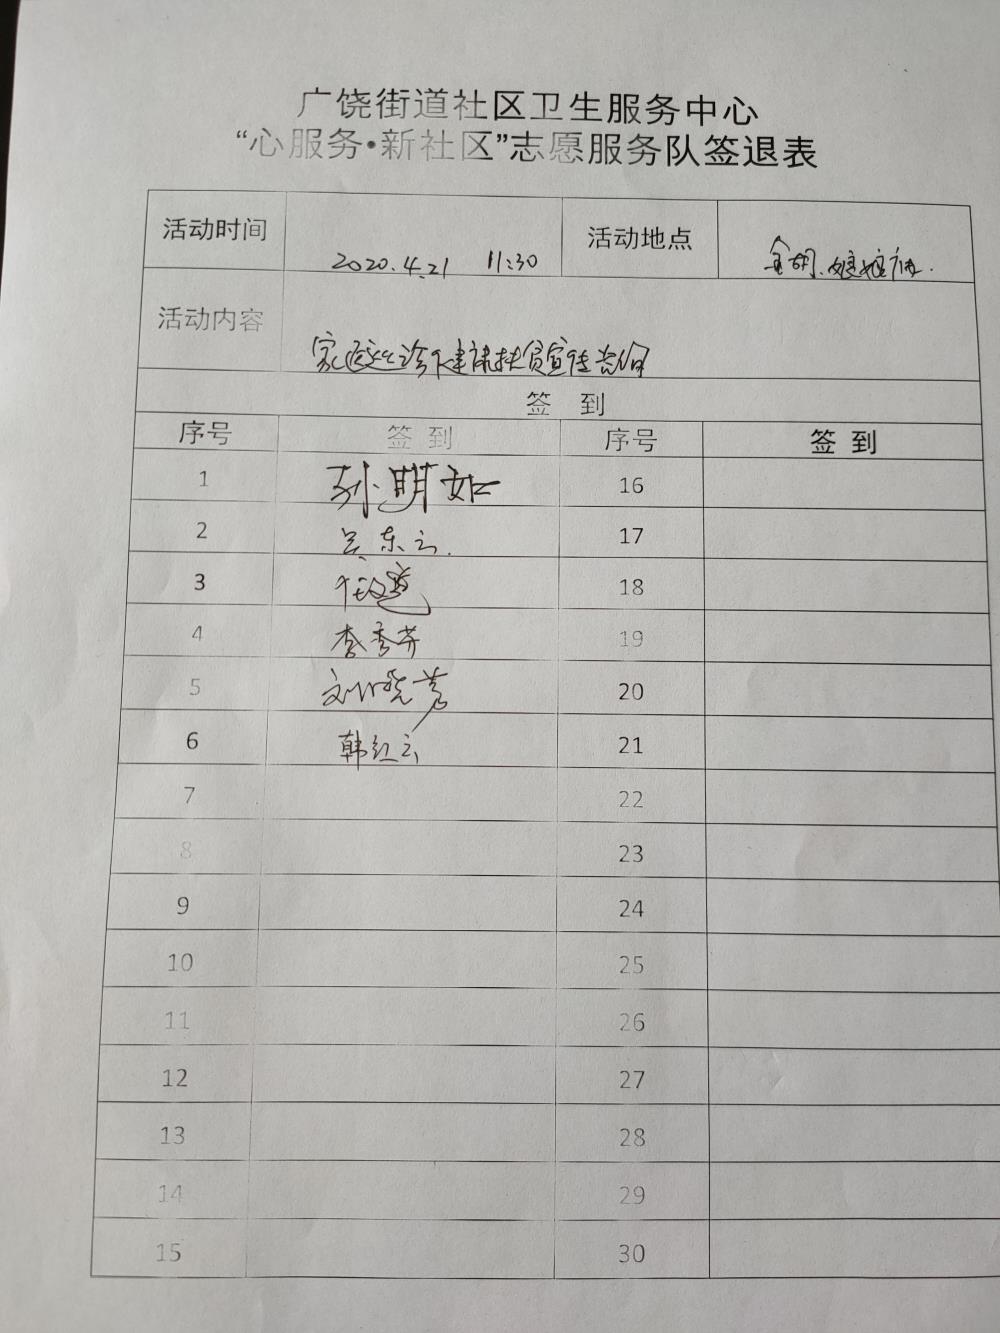 广饶街道社区卫生服务中心
“心服务·新社区”志愿服务队签退表
活动时间 2020.4.21 11:30 活动地点
活动内容
签 到
序号 签 到 序号 签 到
1 孙明 16
2 吴东云 17
3 18
4 李秀芹 19
5 刘晓 20
6 韩红云 21
7 22
8 23
9 24
10 25
11 26
12 27
13 28
14 29
15 30